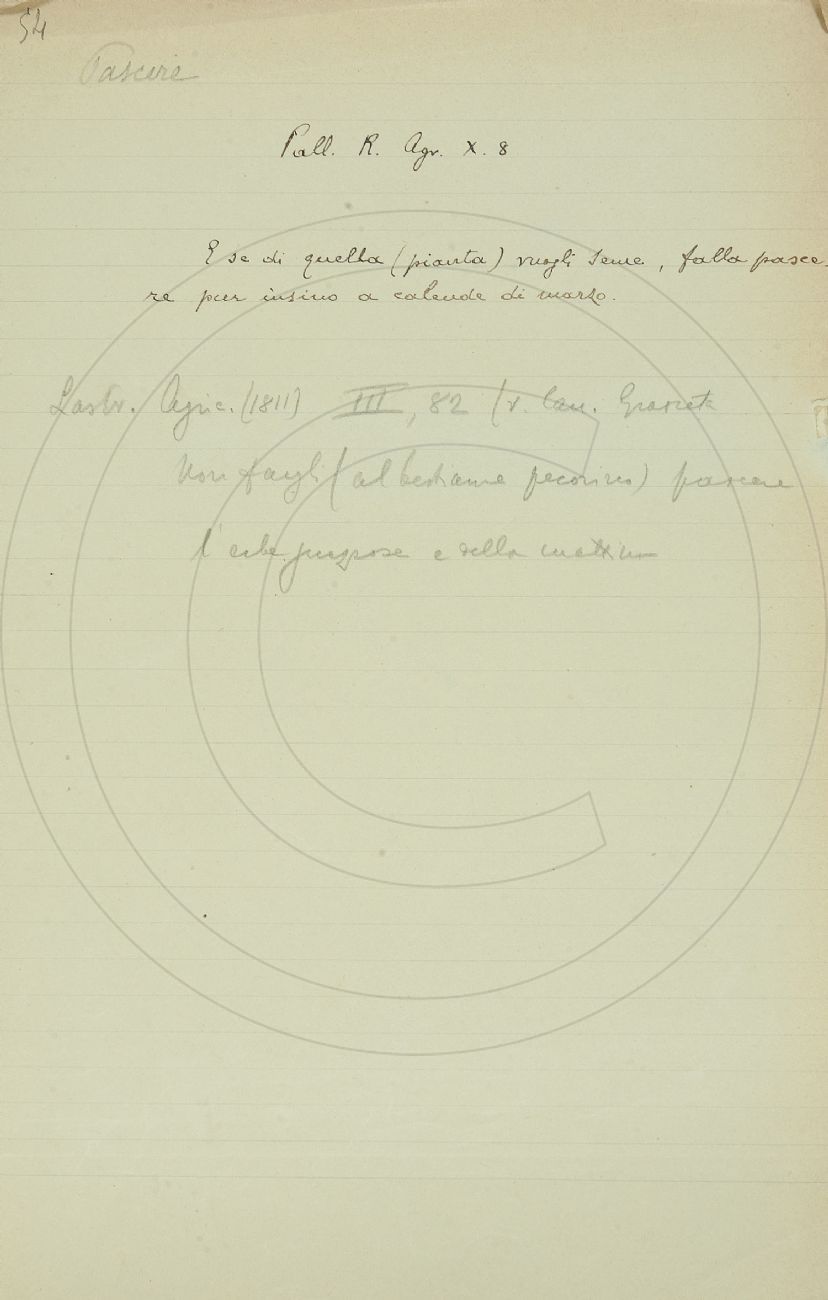 54
Pascere
Pall. R. Agr. X. 8
E se di quella (pianta) vuogli seme, falla pasce-
re pur insino a calende di marzo.
Lastr. Agric. (1811) III, 82 (v. Can.
Non fargli (al bestiame pecorino) pascere
l'erbe guazzose e della mattina